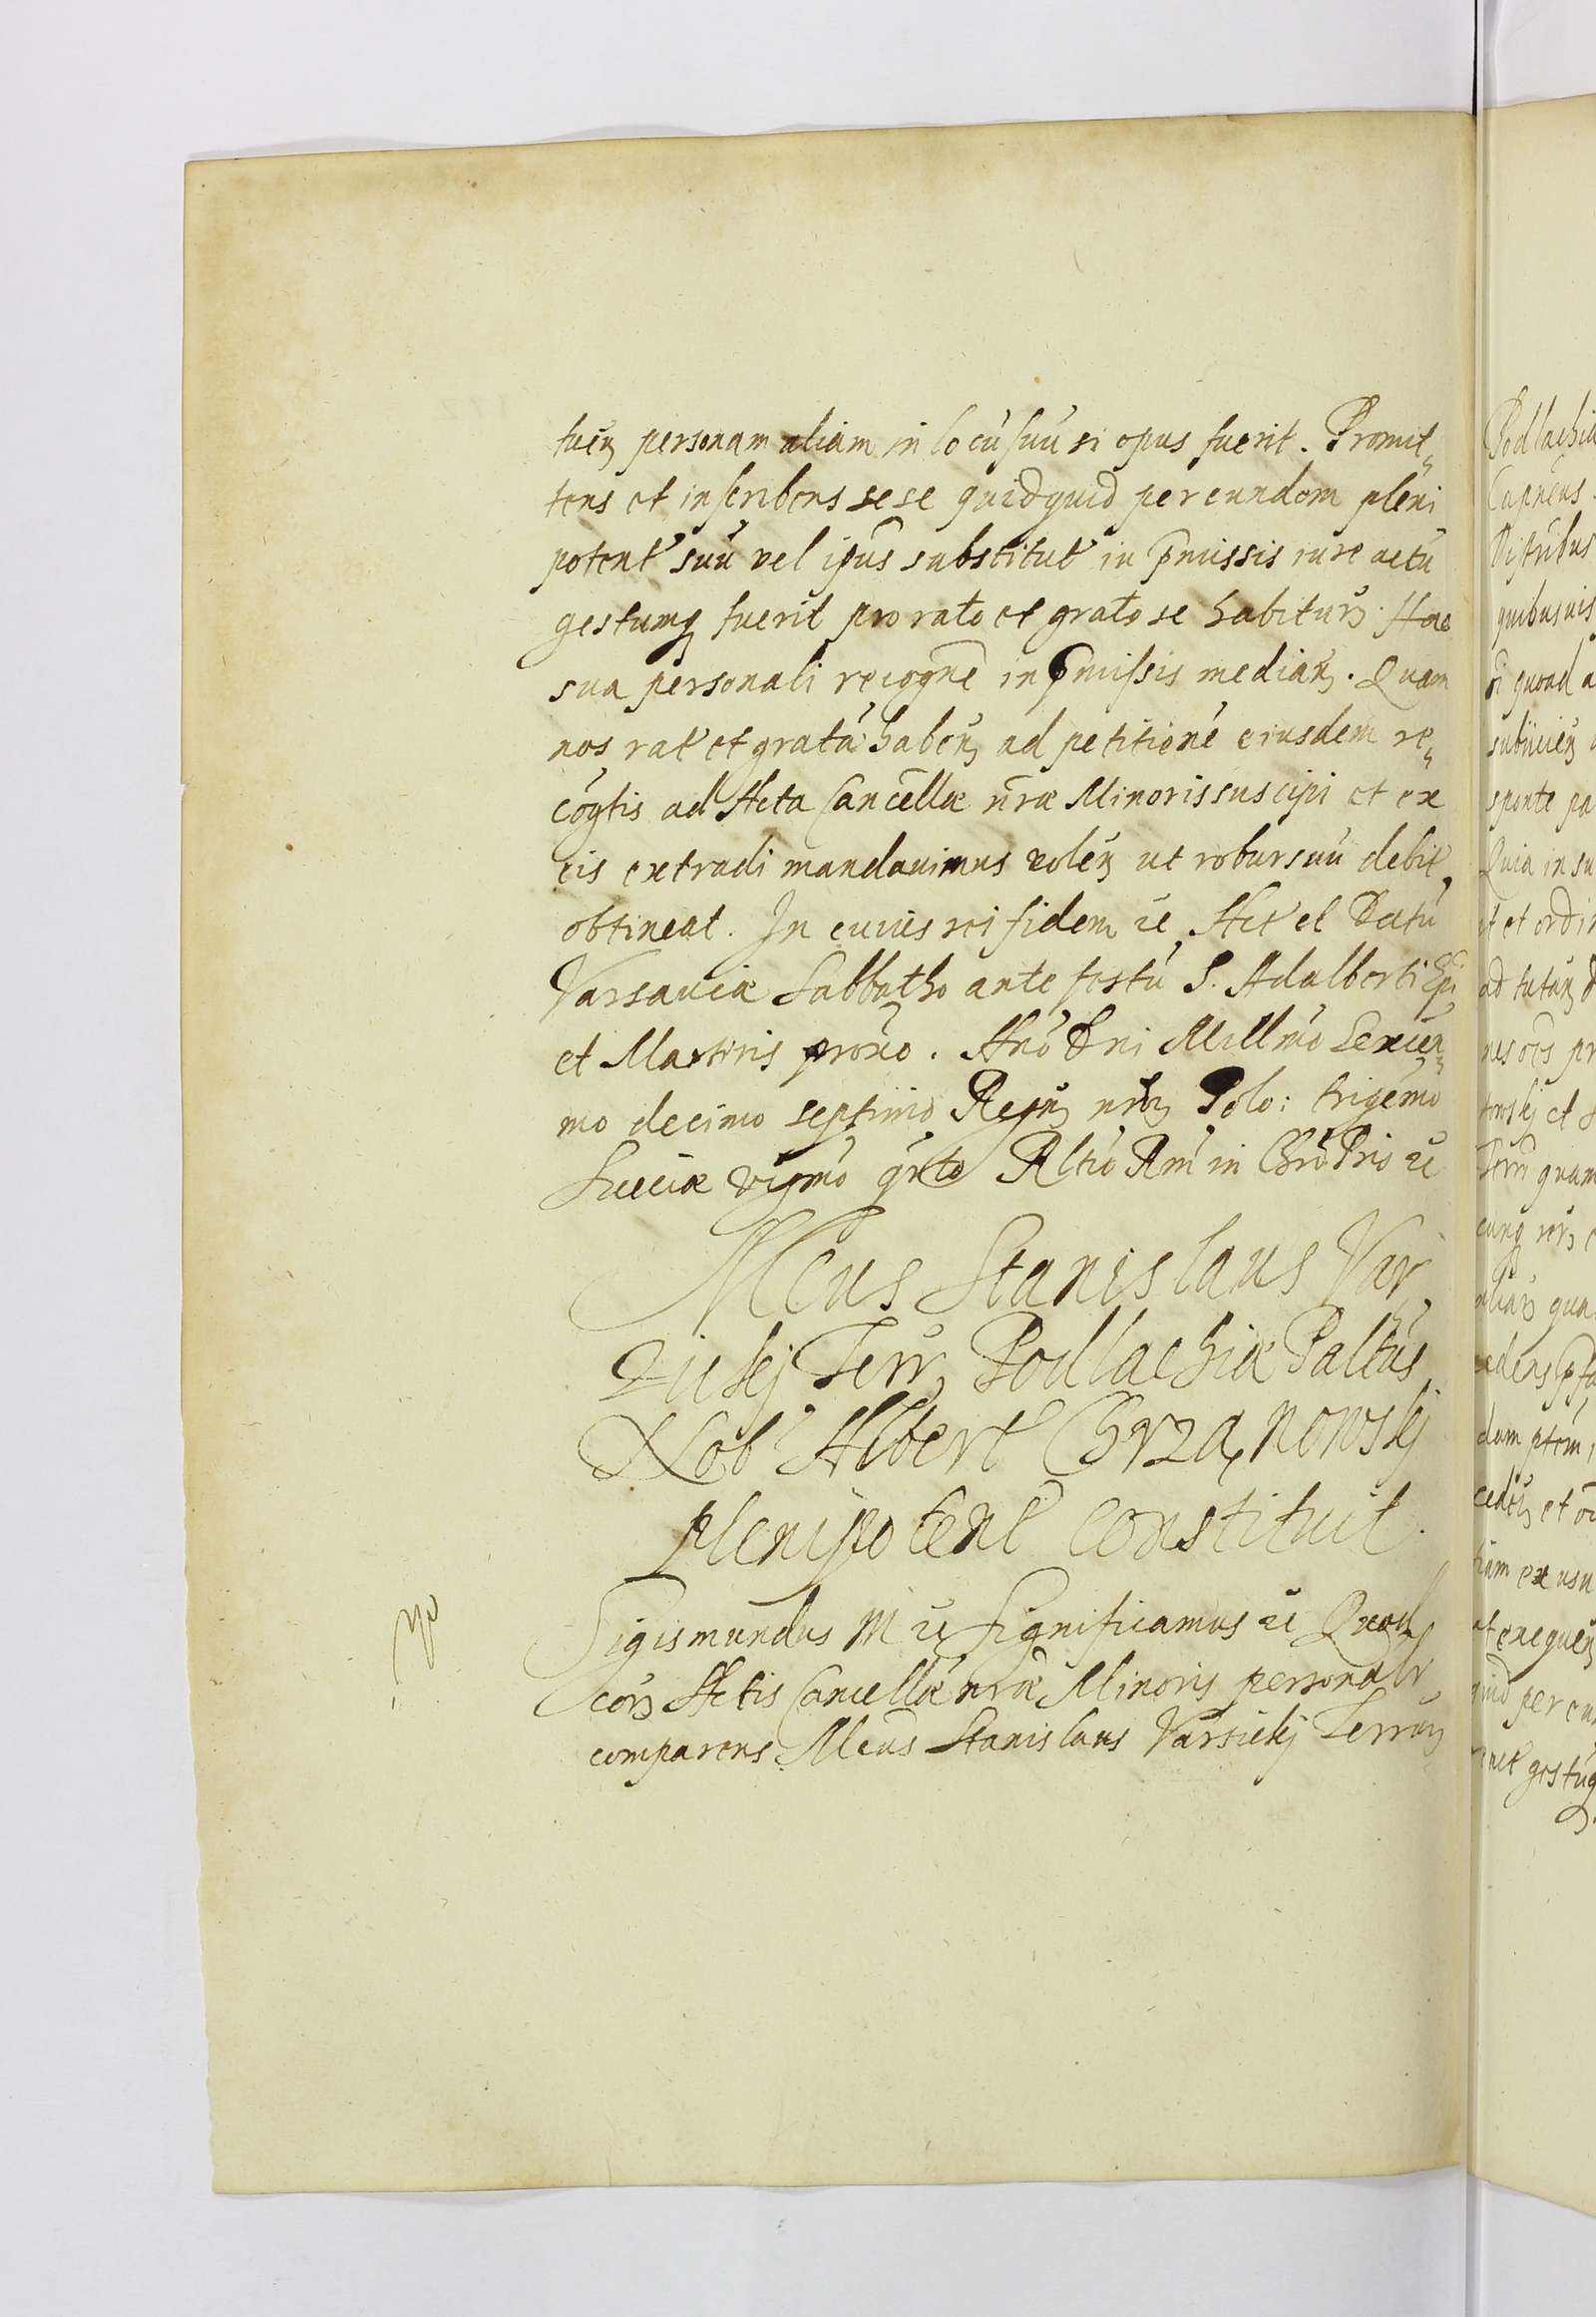 tuen personam aliam in locũ suũ si opus fuerit. Promit„
tens et inscribens sese quidquid per eundem pleni
potent suũ vel ipũs substitut in p̃missis iure actũ
gestumq fuerit pro rato et grato se habitur. Hac
sua personali recogñe in p̃missis median. Quam
nos rat et gratã haben ad petitionẽ eiusdem re„
cogtis ad Acta Cancellæ nr̃æ Minoris suscipi et ex
eis extradi mandauimus volen ut robur suũ debit
obtineat. In cuius rei fidem ꝛc Act et Datũ
Varsauiæ Sabbatho ante festũ S. Adalberti Ep̃i
et Martiris proxo. Año Dñi Millm̃o Sexcen„
mo decimo septimo Regn nr̃or Polo: trigem̃o
Sueciæ vigm̃o qr̃to Rltio Rm̃i in Chr̃o Pr̃is ꝛc
Mcus Stanislaus Var„
zicki Terr Podlachiæ Paltũs
Nob Albert Chrzanowskj
plenipotent constituit.
Sigismundus M ꝛc Significamus ꝛc Quod
cor Actis Cancellæ nr̃æ Minoris personalr
comparens Mcus Stanislaus Varsickj Terrar
Podlachiæ
quibusuis
quoad
subiicien
sponte
Quia in su
et ordin
quam
qua
cedens
dam
ex usu
et exequen
quid per eu